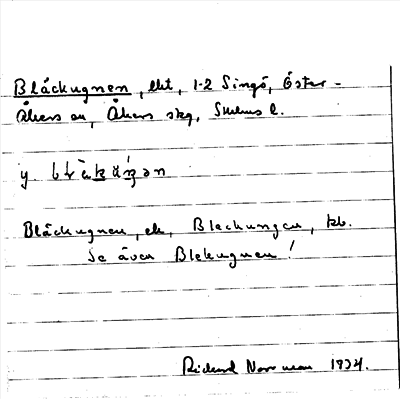 Bläckugnen, lht, 1-2 Singö, Öster-
Åkers sn, Åkers skg, Sthlms l.
y
Bläckugnen, ek, Bleckungen, kb.
Se även Blekugnen!
Rickard Norrman 1934.